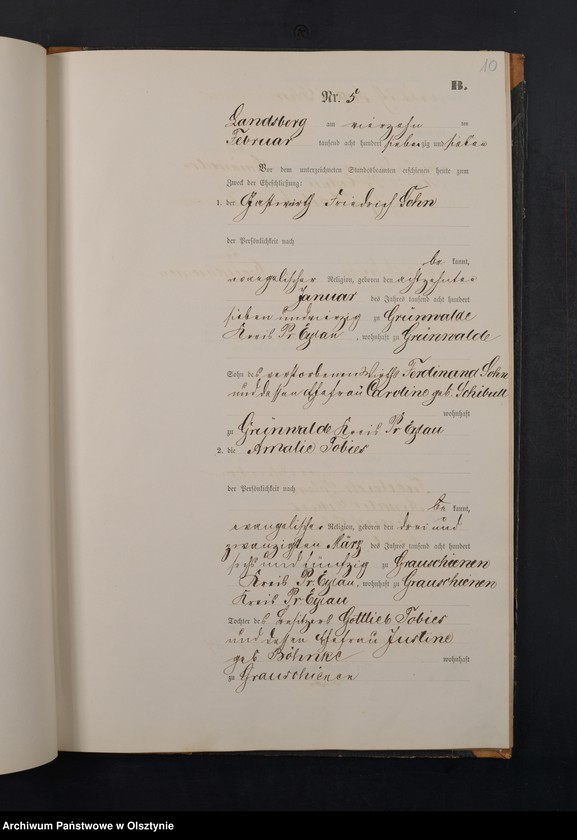 10
B.
Nr. 5
Landsberg am vierzehn ten
Februar tausend acht hundert siebenzig und sieben
Vor dem unterzeichneten Standesbeamten erschienen heute zum
Zweck der Eheschließung:
1. der Gastwirth Friedrich Sohn
der Persönlichkeit nach
be kannt,
evangelischer Religion, geboren den achtzehnten
Januar des Jahres tausend acht hundert
sieben und vierzig zu Grünwalde
Kreis Pr. Eylau, wohnhaft zu Grünwalde
Sohn des verstorbenen Wirths Ferdinand Sohn
und dessen Ehefrau Caroline geb. Schibull
wohnhaft
zu Grünwalde Kreis Pr Eylau
2. die Amalie Tobies
der Persönlichkeit nach
be kannt,
evangelischer Religion, geboren den drei und
zwanzigsten März des Jahres tausend acht hundert
sechs und fünfzig zu Grauschienen
Kreis Pr. Eylau, wohnhaft zu Grauschienen
Kreis Pr. Eylau
Tochter des Besitzers Gottlieb Tobies
und dessen Ehefrau Justine
geb. Böhnke wohnhaft
zu Grauschienen
Archiwum Państwowe w Olsztynie